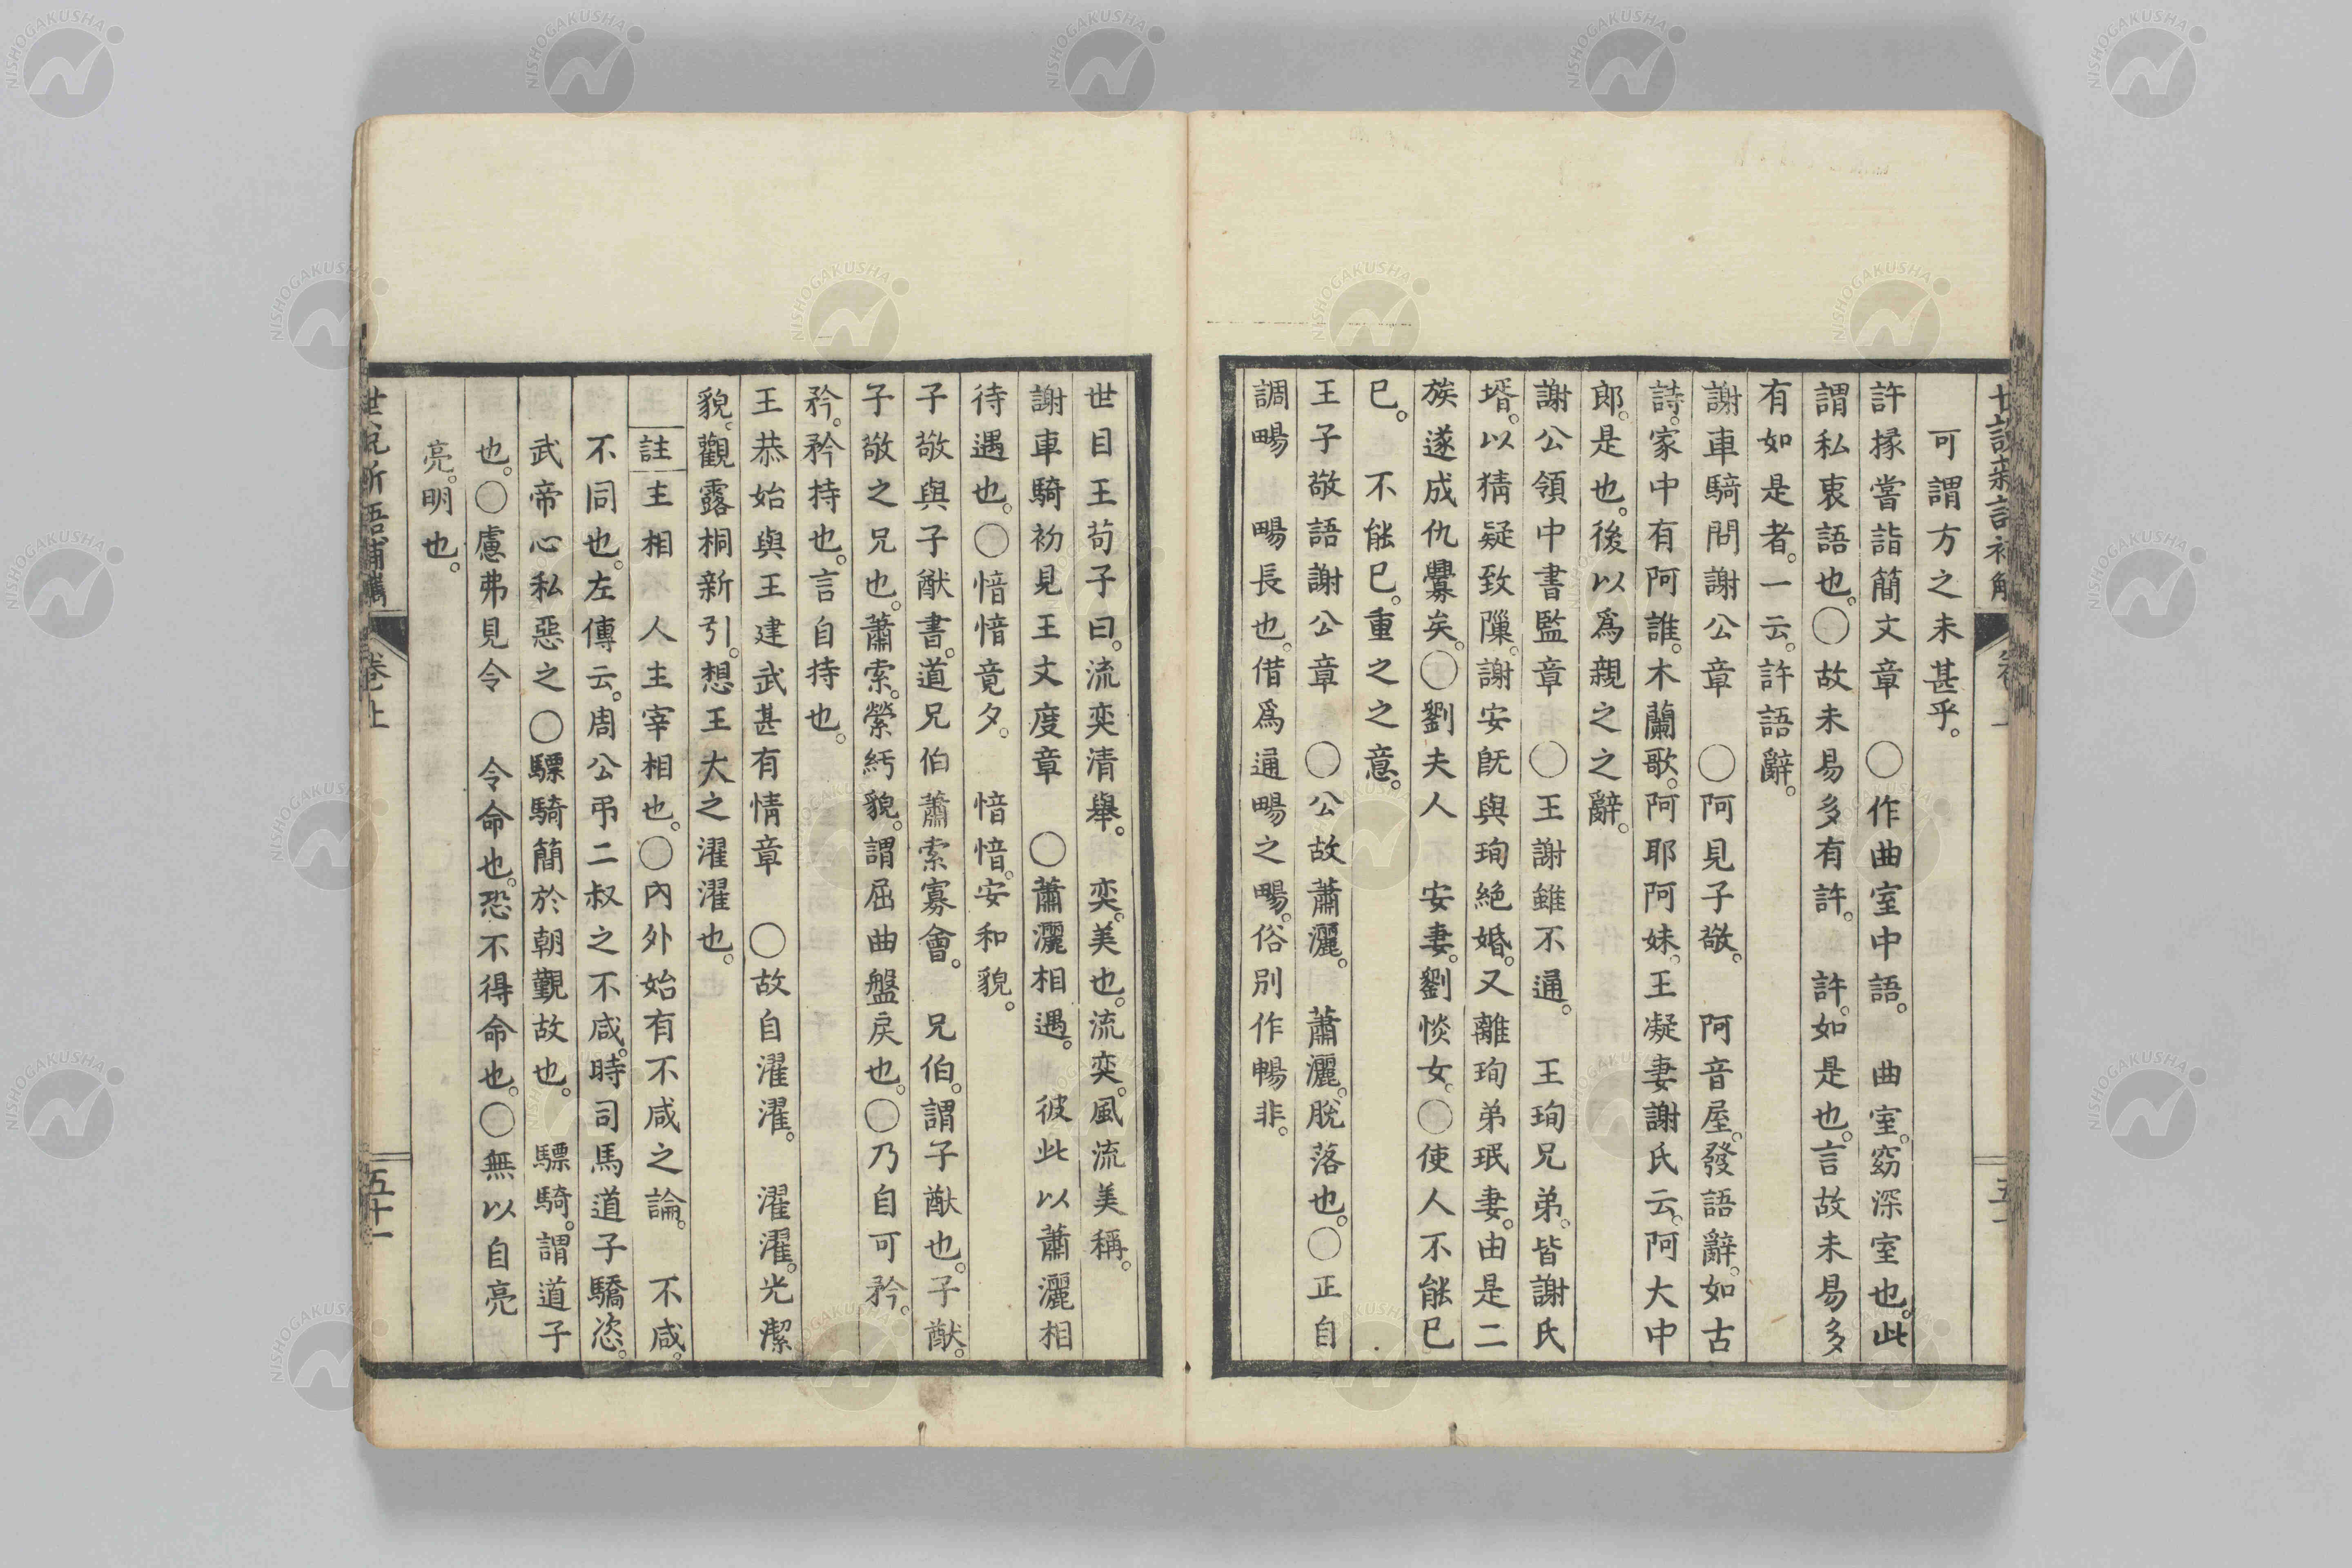 可謂方之未甚乎。
許掾嘗詣簡文章　〇作曲室中語。　曲室。窈深室也。此
謂私衷語也。〇故未易多有許。　許。如是也。言故未易多
有如是者。一云。許語辭。
謝車騎問謝公章　〇阿見子敬。　阿音屋。發語辭。如古
詩。家中有阿誰。木蘭歌。阿耶阿妹。王凝妻謝氏云。阿大中
郎。是也。後以爲親之之辭。
謝公領中書監章　〇王謝雖不通。　王珣兄弟。皆謝氏
壻。以猜疑致隟。謝安既與珣絶婚。又離珣弟珉妻。由是二
族遂成仇釁矣。〇劉夫人　安妻。劉惔女。〇使人不能已
已。　不能已。重之之意。
王子敬語謝公章　〇公故蕭灑。　蕭灑。脫落也。〇正自
調暢　暢長也。借爲通暢之暢。俗別作暢非。
世目王茍子曰。流奕清舉。　奕。美也。流奕。風流美稱。
謝車騎初見王文度章　〇蕭灑相遇。　彼此以蕭灑相
待遇也。〇愔愔竟夕。　愔愔。安和貌。
子敬與子猷書。道兄伯蕭索寡會。　兄伯。謂子猷也。子猷。
子敬之兄也。蕭索。縈紆貌。謂屈曲盤戾也。〇乃自可矜。
矜。矜持也。言自持也。
王恭始與王建武甚有情章　〇故自濯濯。　濯濯。光潔
貌。觀露桐新引。想王大之濯濯也。
註　主相　人主宰相也。〇內外始有不咸之論。　不咸。
不同也。左傳云。周公弔二叔之不咸。時司馬道子驕恣。
武帝心私惡之〇驃騎簡於朝覲故也。　驃騎。謂道子
也。〇慮弗見令　令命也。恐不得命也。〇無以自亮
亮。明也。
卷上
五十一